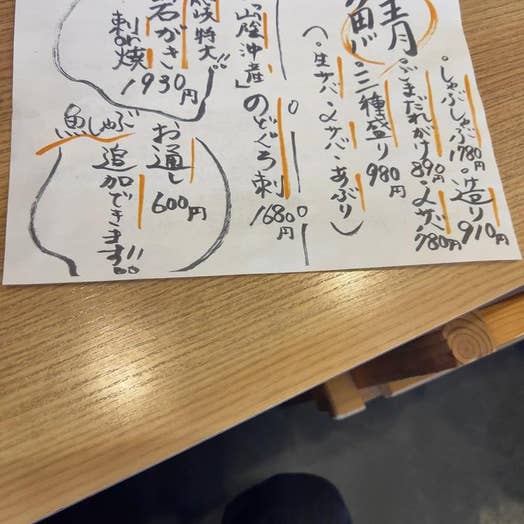 鯖
・しゃぶしゃぶ1780円・造り910円
・ごまだれがけ890円・〆サバ780円
・三種盛り980円
(・生サバ・〆サバ・あぶり)
山陰沖産」のどぐろ刺
1680円
特大!!
岩がき
1930円
お通し600円
魚しゃぶ
追加できます!!